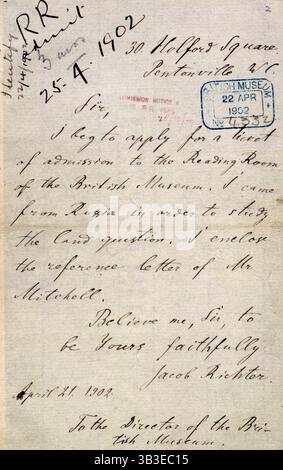 2
RR
25.4.1902
30. Holford Square
Pentonville W.C.
BRITISH MUSEUM
22 APR
1902
No 4332
ADMISSION
Sir,
I beg to apply for a ticket
of admission to the Reading Room
of the British Museum. I came
from Russia in order to study
the land question. I enclose
the reference letter of Mr
Mitchell.
Believe me, Sir, to
be Yours faithfully
Jacob Richter.
April 21. 1902.
To the Director of the Bri-
tish Museum.
alamy
Image ID: 3B3EC15
www.alamy.com